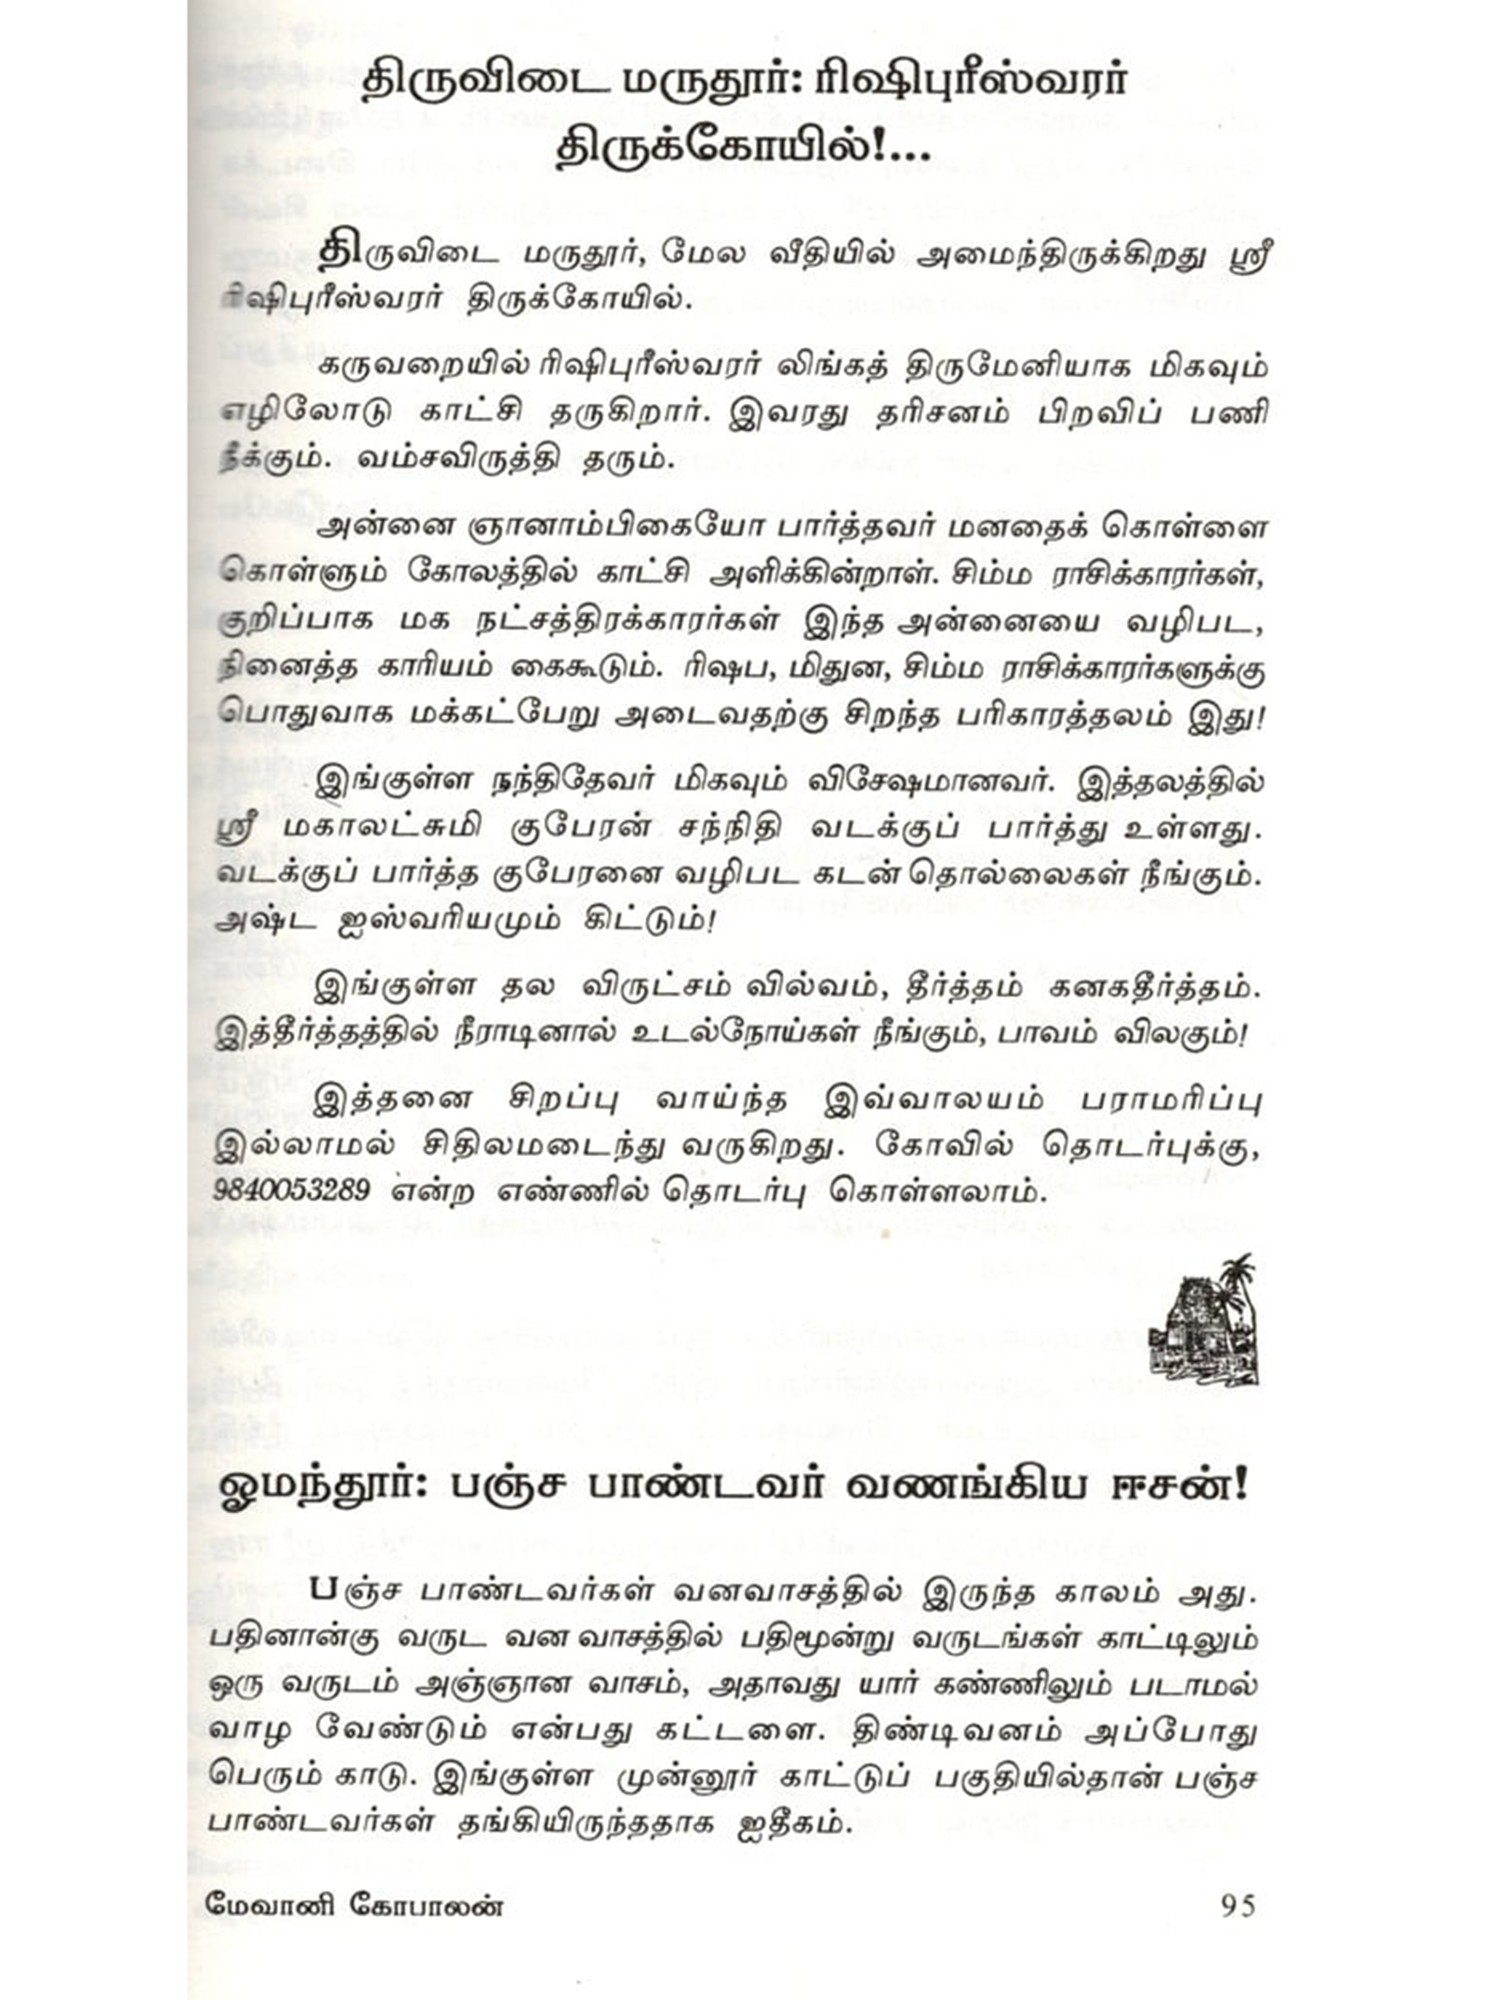 திருவிடை மருதூர்: ரிஷிபுரீஸ்வரர்
திருக்கோயில்!...
திருவிடை மருதூர், மேல வீதியில் அமைந்திருக்கிறது ஸ்ரீ
ரிஷிபுரீஸ்வரர் திருக்கோயில்.
கருவறையில் ரிஷிபுரீஸ்வரர் லிங்கத் திருமேனியாக மிகவும்
எழிலோடு காட்சி தருகிறார். இவரது தரிசனம் பிறவிப் பணி
நீக்கும். வம்சவிருத்தி தரும்.
அன்னை ஞானாம்பிகையோ பார்த்தவர் மனதைக் கொள்ளை
கொள்ளும் கோலத்தில் காட்சி அளிக்கின்றாள். சிம்ம ராசிக்காரர்கள்,
குறிப்பாக மக நட்சத்திரக்காரர்கள் இந்த அன்னையை வழிபட,
நினைத்த காரியம் கைகூடும். ரிஷப, மிதுன, சிம்ம ராசிக்காரர்களுக்கு
பொதுவாக மக்கட்பேறு அடைவதற்கு சிறந்த பரிகாரத்தலம் இது!
இங்குள்ள நந்திதேவர் மிகவும் விசேஷமானவர். இத்தலத்தில்
ஸ்ரீ மகாலட்சுமி குபேரன் சந்நிதி வடக்குப் பார்த்து உள்ளது.
வடக்குப் பார்த்த குபேரனை வழிபட கடன் தொல்லைகள் நீங்கும்.
அஷ்ட ஐஸ்வரியமும் கிட்டும்!
இங்குள்ள தல விருட்சம் வில்வம், தீர்த்தம் கனகதீர்த்தம்.
இத்தீர்த்தத்தில் நீராடினால் உடல்நோய்கள் நீங்கும், பாவம் விலகும்!
இத்தனை சிறப்பு வாய்ந்த இவ்வாலயம் பராமரிப்பு
இல்லாமல் சிதிலமடைந்து வருகிறது. கோவில் தொடர்புக்கு,
9840053289 என்ற எண்ணில் தொடர்பு கொள்ளலாம்.
ஓமந்தூர்: பஞ்ச பாண்டவர் வணங்கிய ஈசன்!
பஞ்ச பாண்டவர்கள் வனவாசத்தில் இருந்த காலம் அது.
பதினான்கு வருட வன வாசத்தில் பதிமூன்று வருடங்கள் காட்டிலும்
ஒரு வருடம் அஞ்ஞான வாசம், அதாவது யார் கண்ணிலும் படாமல்
வாழ வேண்டும் என்பது கட்டளை. திண்டிவனம் அப்போது
பெரும் காடு. இங்குள்ள முன்னூர் காட்டுப் பகுதியில்தான் பஞ்ச
பாண்டவர்கள் தங்கியிருந்ததாக ஐதீகம்.
மேவானி கோபாலன்
95